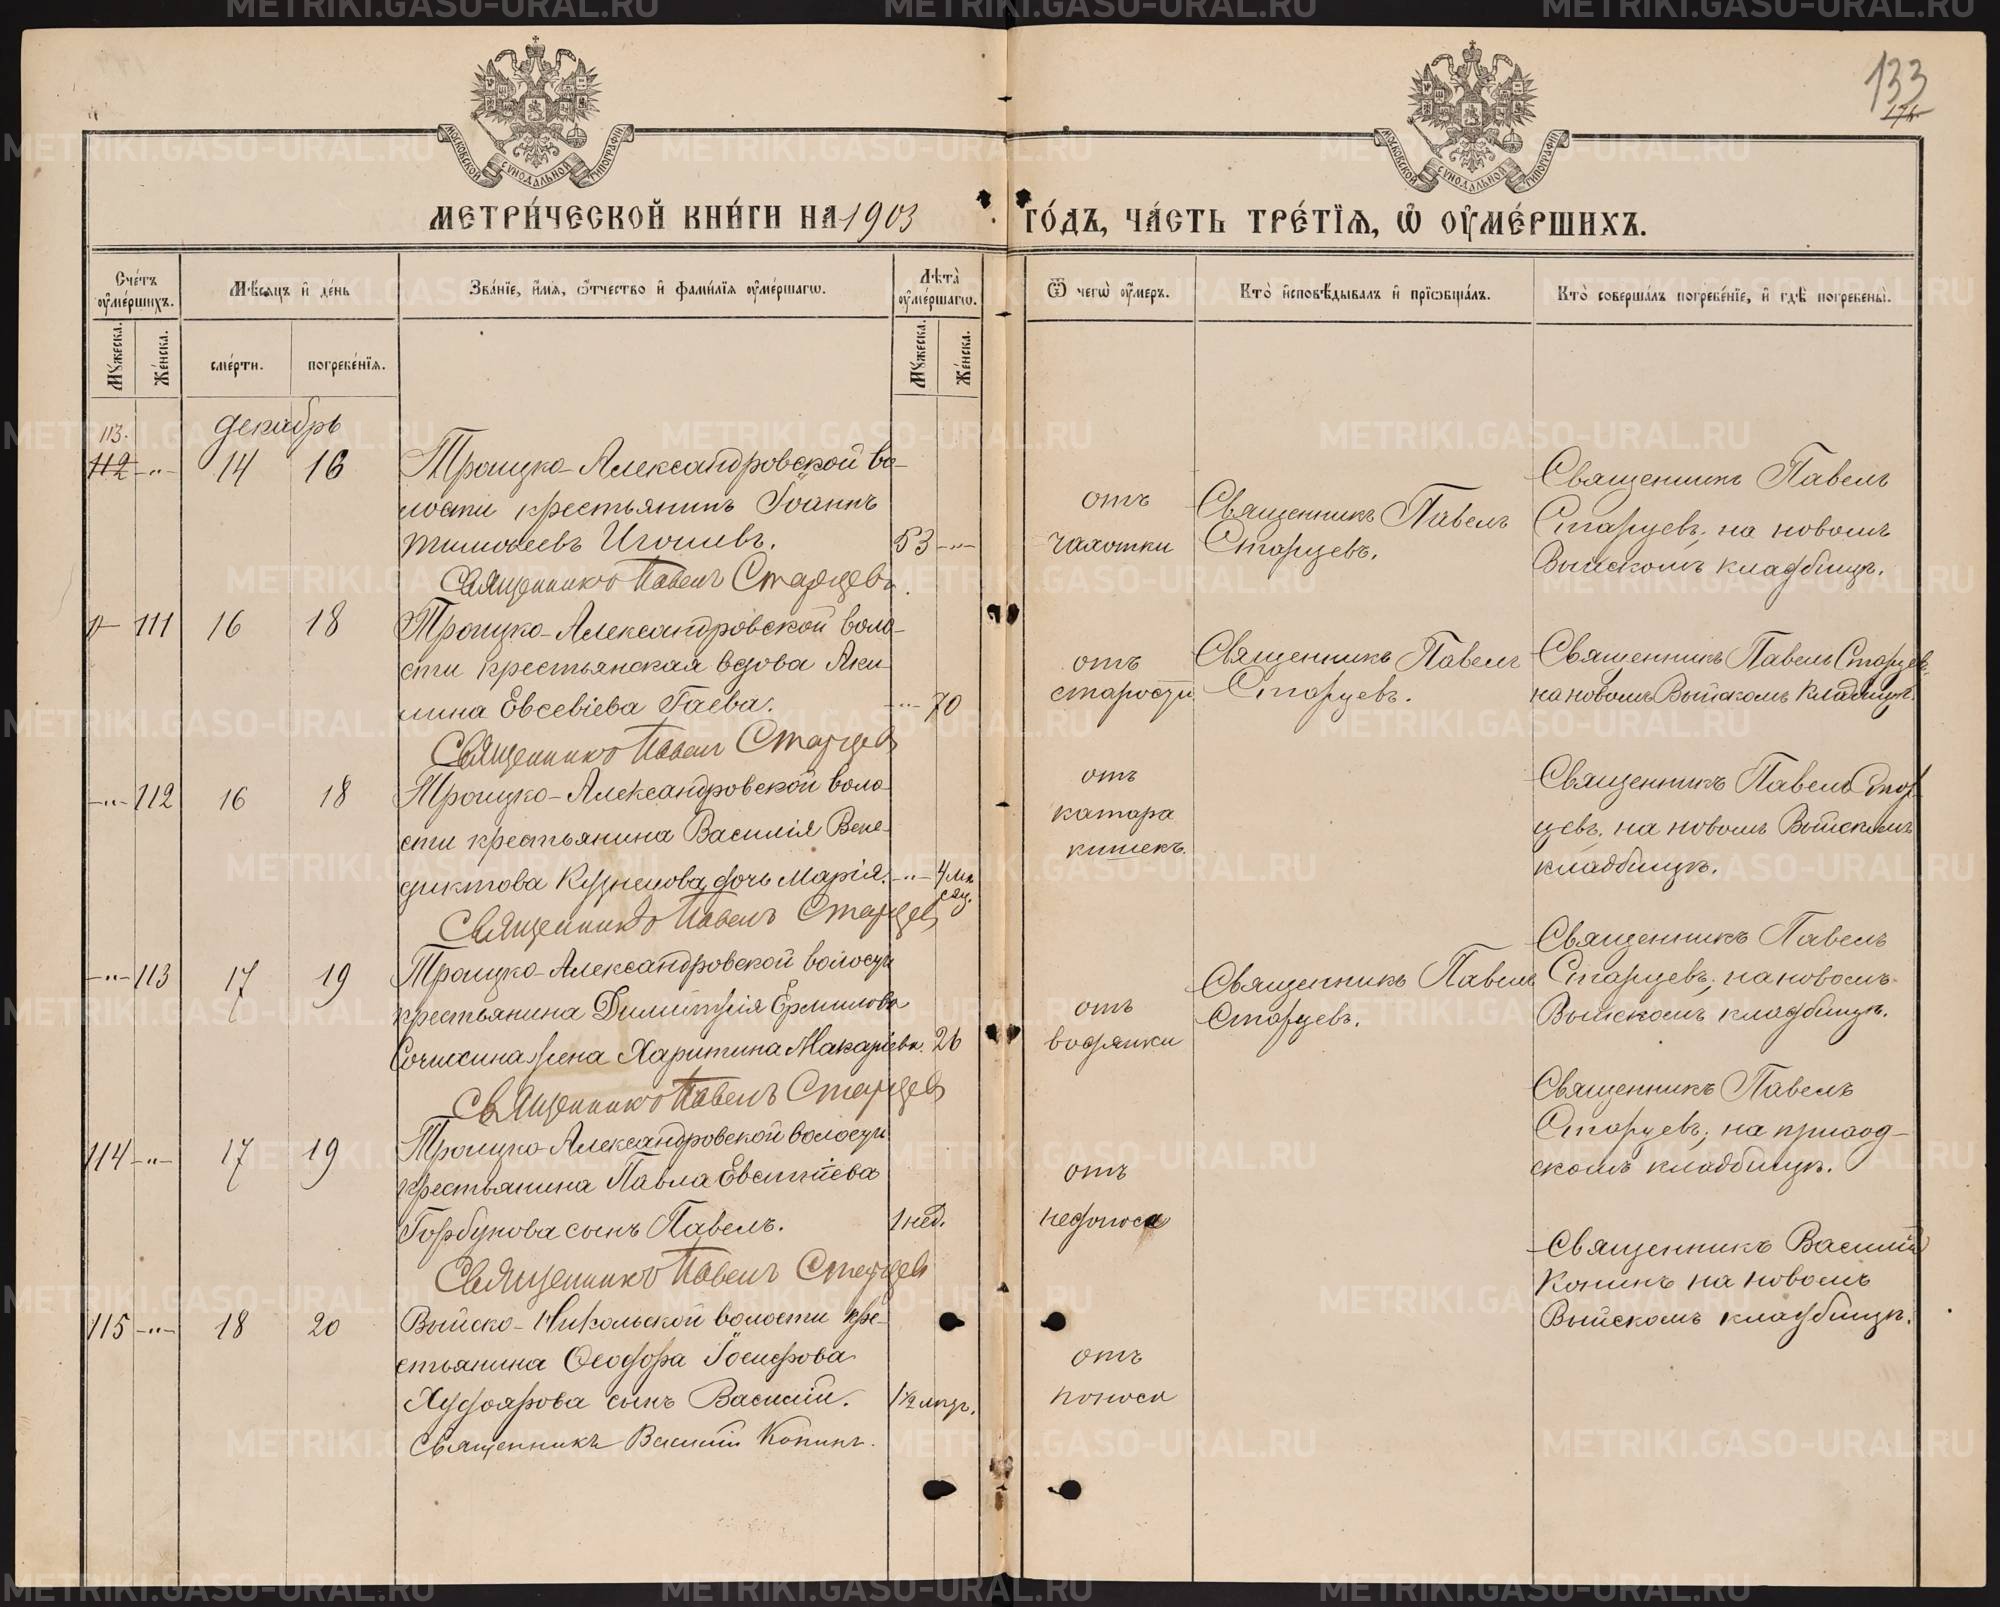 133
МОСКОВСКОЙ СУНОДАЛЬНОЙ ТИПОГРАФІИ
МОСКОВСКОЙ СУНОДАЛЬНОЙ ТИПОГРАФІИ
МЕТРИ́ЧЕСКОЙ КНИ́ГИ НА 1903 ГО́ДЪ, ЧА́СТЬ ТРЕ́ТІѦ, Ѡ ОУМЕ́РШИХЪ.
Сче́тъ оуме́ршихъ.
Мѣ́сяцъ и де́нь
Зва́нїе, и́мѧ, ѻ́тчество и фами́лїѧ оуме́ршагѡ.
Лѣта̀ оуме́ршагѡ.
Ѿ чегѡ̀ оу́меръ.
Кто̀ исповѣ́дывалъ и прїѡбща́лъ.
Кто̀ соверша́лъ погребе́нїе, и гдѣ̀ погребены̀.
Мꙋ́жеска.
Же́нска.
сме́рти.
погребе́нїѧ.
Мꙋ́жеска.
Же́нска.
декабрь
113.
112 -"- 14 16
Троицко-Александровской во-
лости крестьянинъ Іоаннъ
Тимоѳеевъ Игошевъ. 53 -"-
Священникъ Павелъ Старцевъ.
отъ
чахотки
Священникъ Павелъ
Старцевъ.
Священникъ Павелъ
Старцевъ, на новомъ
Выйскомъ кладбищѣ.
-"- 111 16 18
Троицко-Александровской воло-
сти крестьянская вдова Аки-
лина Евсевіева Гаева. -"- 70
Священникъ Павелъ Старцевъ
отъ
старости
Священникъ Павелъ
Старцевъ.
Священникъ Павелъ Старцевъ,
на новомъ Выйскомъ кладбищѣ.
-"- 112 16 18
Троицко-Александровской воло-
сти крестьянина Василія Вене-
диктова Кузнецова дочь Марія. -"- 4 мѣ-
сяц.
Священникъ Павелъ Старцевъ
отъ
катара
кишекъ.
Священникъ Павелъ Стар-
цевъ, на новомъ Выйскомъ
кладбищѣ.
-"- 113 17 19
Троицко-Александровской волости
крестьянина Димитрія Ермилова
жена Харитина Макаріева. 26
Священникъ Павелъ Старцевъ
отъ
водянки
Священникъ Павелъ
Старцевъ.
Священникъ Павелъ
Старцевъ, на новомъ
Выйскомъ кладбищѣ.
114 -"- 17 19
Троицко-Александровской волости
крестьянина Павла Евстигнѣева
Горбунова сынъ Павелъ. 1 нед.
Священникъ Павелъ Старцевъ
отъ
недоноса
Священникъ Павелъ
Старцевъ, на приход-
скомъ кладбищѣ.
115 -"- 18 20
Выйско-Никольской волости кре-
стьянина Ѳеодора Іосифова
Худоярова сынъ Василій. 1½ мѣс.
Священникъ Василій Конинъ.
отъ
поноса
Священникъ Василій
Конинъ на новомъ
Выйскомъ кладбищѣ.
METRIKI.GASO-URAL.RU